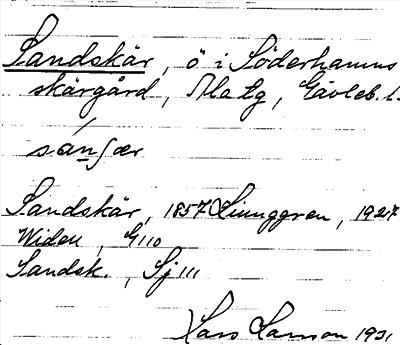 Sandskär, ö i Söderhamns
skärgård, Ala tg, Gävleb. l.
sánʃær
Sandskär, 1857 Ljunggren, 1927
Widell, G 110
Sandsk., Sj 111
Lars Larson 1931